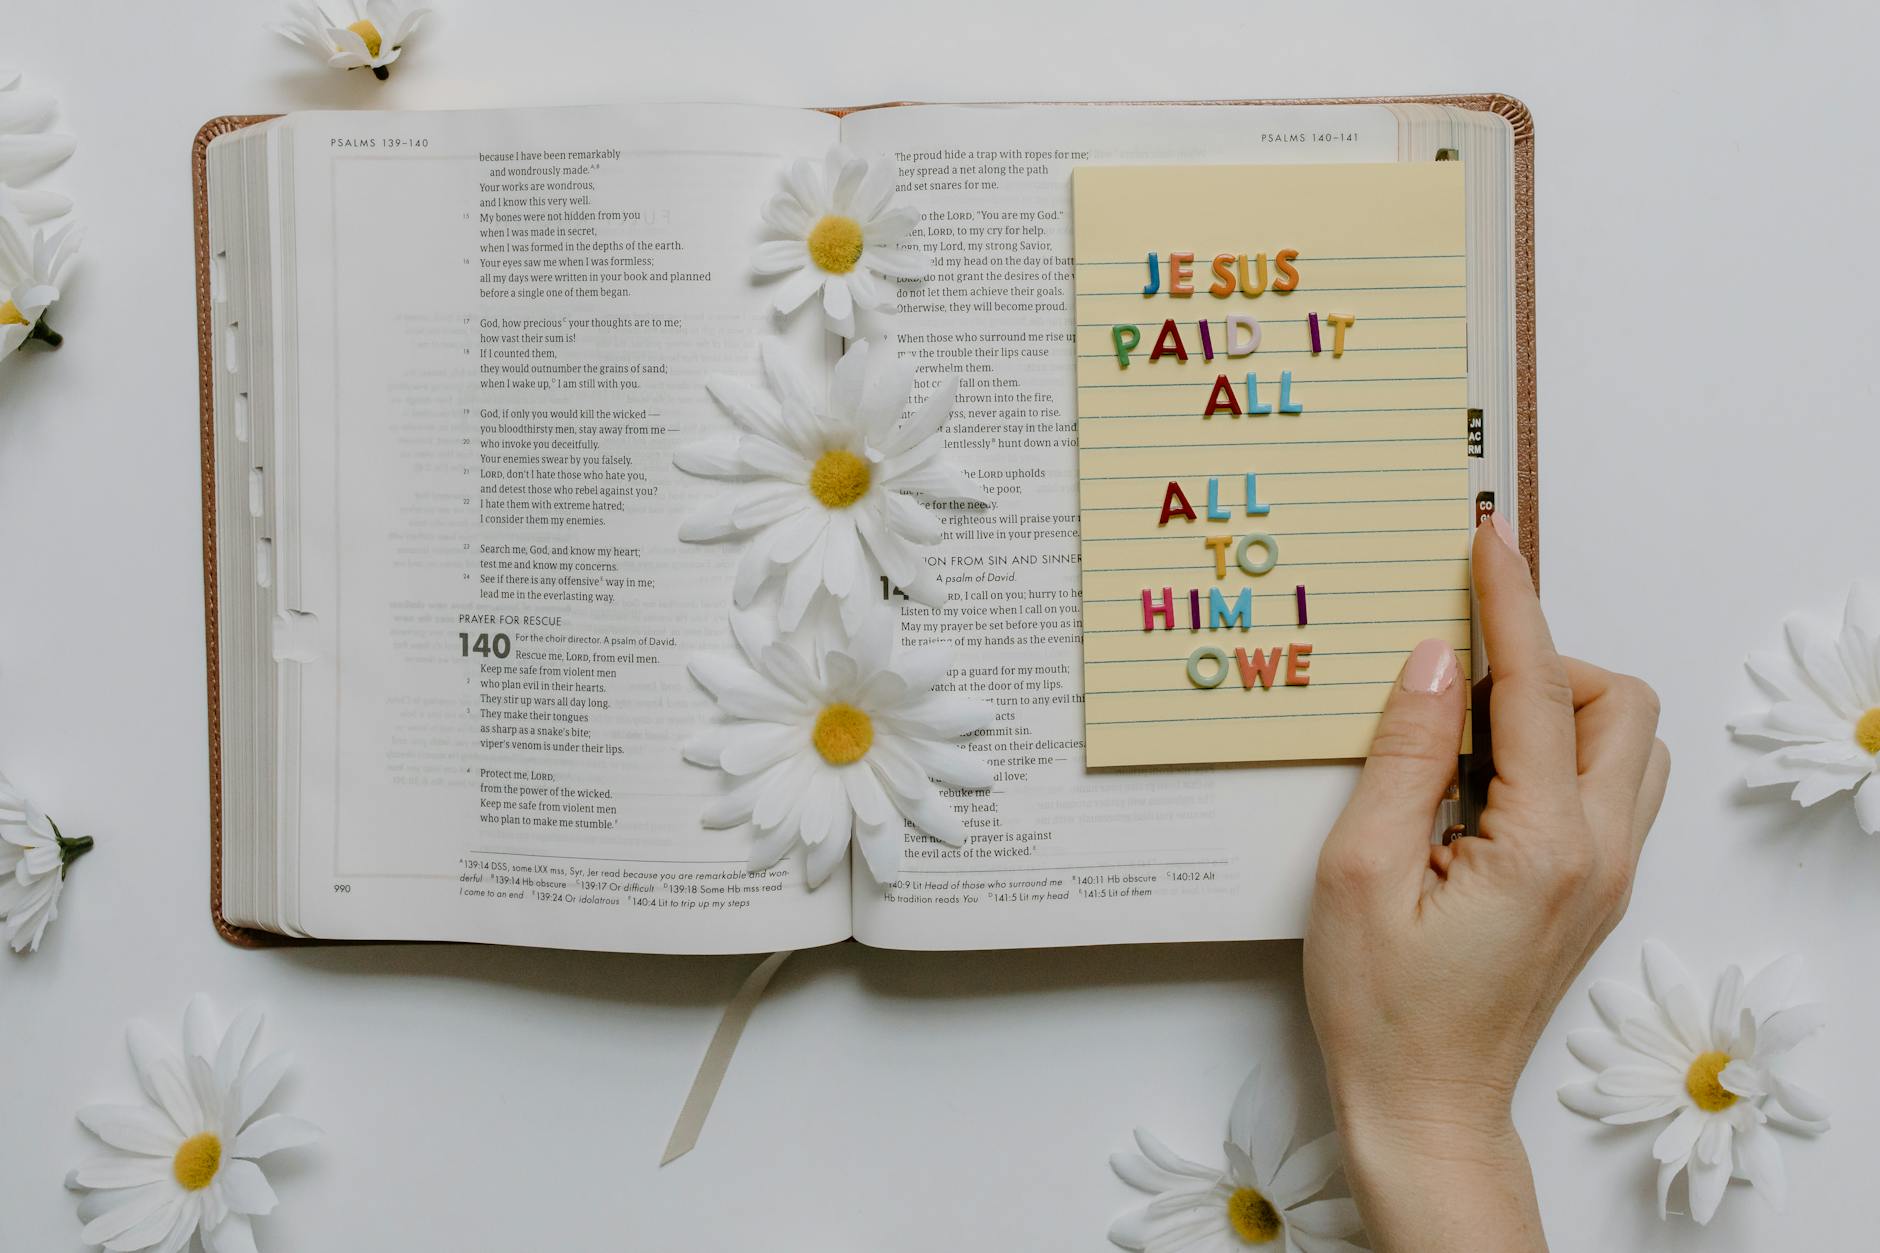 PSALMS 139–140
because I have been remarkably
and wondrously made.A,B
Your works are wondrous,
and I know this very well.
15 My bones were not hidden from you
when I was made in secret,
when I was formed in the depths of the earth.
16 Your eyes saw me when I was formless;
all my days were written in your book and planned
before a single one of them began.
17 God, how preciousC your thoughts are to me;
how vast their sum is!
18 If I counted them,
they would outnumber the grains of sand;
when I wake up,D I am still with you.
19 God, if only you would kill the wicked —
you bloodthirsty men, stay away from me —
20 who invoke you deceitfully.
Your enemies swear by you falsely.
21 LORD, don't I hate those who hate you,
and detest those who rebel against you?
22 I hate them with extreme hatred;
I consider them my enemies.
23 Search me, God, and know my heart;
test me and know my concerns.
24 See if there is any offensiveE way in me;
lead me in the everlasting way.
PRAYER FOR RESCUE
140 For the choir director. A psalm of David.
Rescue me, LORD, from evil men.
Keep me safe from violent men
2 who plan evil in their hearts.
They stir up wars all day long.
3 They make their tongues
as sharp as a snake's bite;
viper's venom is under their lips.
4 Protect me, LORD,
from the power of the wicked.
Keep me safe from violent men
who plan to make me stumble.F
A139:14 DSS, some LXX mss, Syr, Jer read because you are remarkable and won-
derful B139:14 Hb obscure C139:17 Or difficult D139:18 Some Hb mss read
I come to an end E139:24 Or idolatrous F140:4 Lit to trip up my steps
990
PSALMS 140–141
The proud hide a trap with ropes for me;
hey spread a net along the path
and set snares for me.
to the LORD, "You are my God."
LORD, to my cry for help.
LORD, my Lord, my strong Savior,
my head on the day of
LORD, do not grant the desires of the
do not let them achieve their goals.
Otherwise, they will become proud.
9 When those who surround me rise up
the trouble their lips cause
overwhelm them.
hot fall on them.
thrown into the fire,
never again to rise.
a slanderer stay in the land
hunt down a
the LORD upholds
the poor,
for the needy.
righteous will praise your
will live in your presence.
FROM SIN AND
A psalm of David.
I call on you; hurry to
Listen to my voice when I call on you.
May my prayer be set before you as
the raising of my hands as the
up a guard for my mouth;
at the door of my lips.
turn to any evil
acts
commit sin.
feast on their delicacies.
one strike me —
love;
rebuke me —
my head;
refuse it.
Even prayer is against
the evil acts of the wicked.E
140:9 Lit Head of those who surround me B140:11 Hb obscure C140:12 Alt
Hb tradition reads You D141:5 Lit my head E141:5 Lit of them
JESUS
PAID IT
ALL
ALL
TO
HIM I
OWE
JN
AC
RM
CO